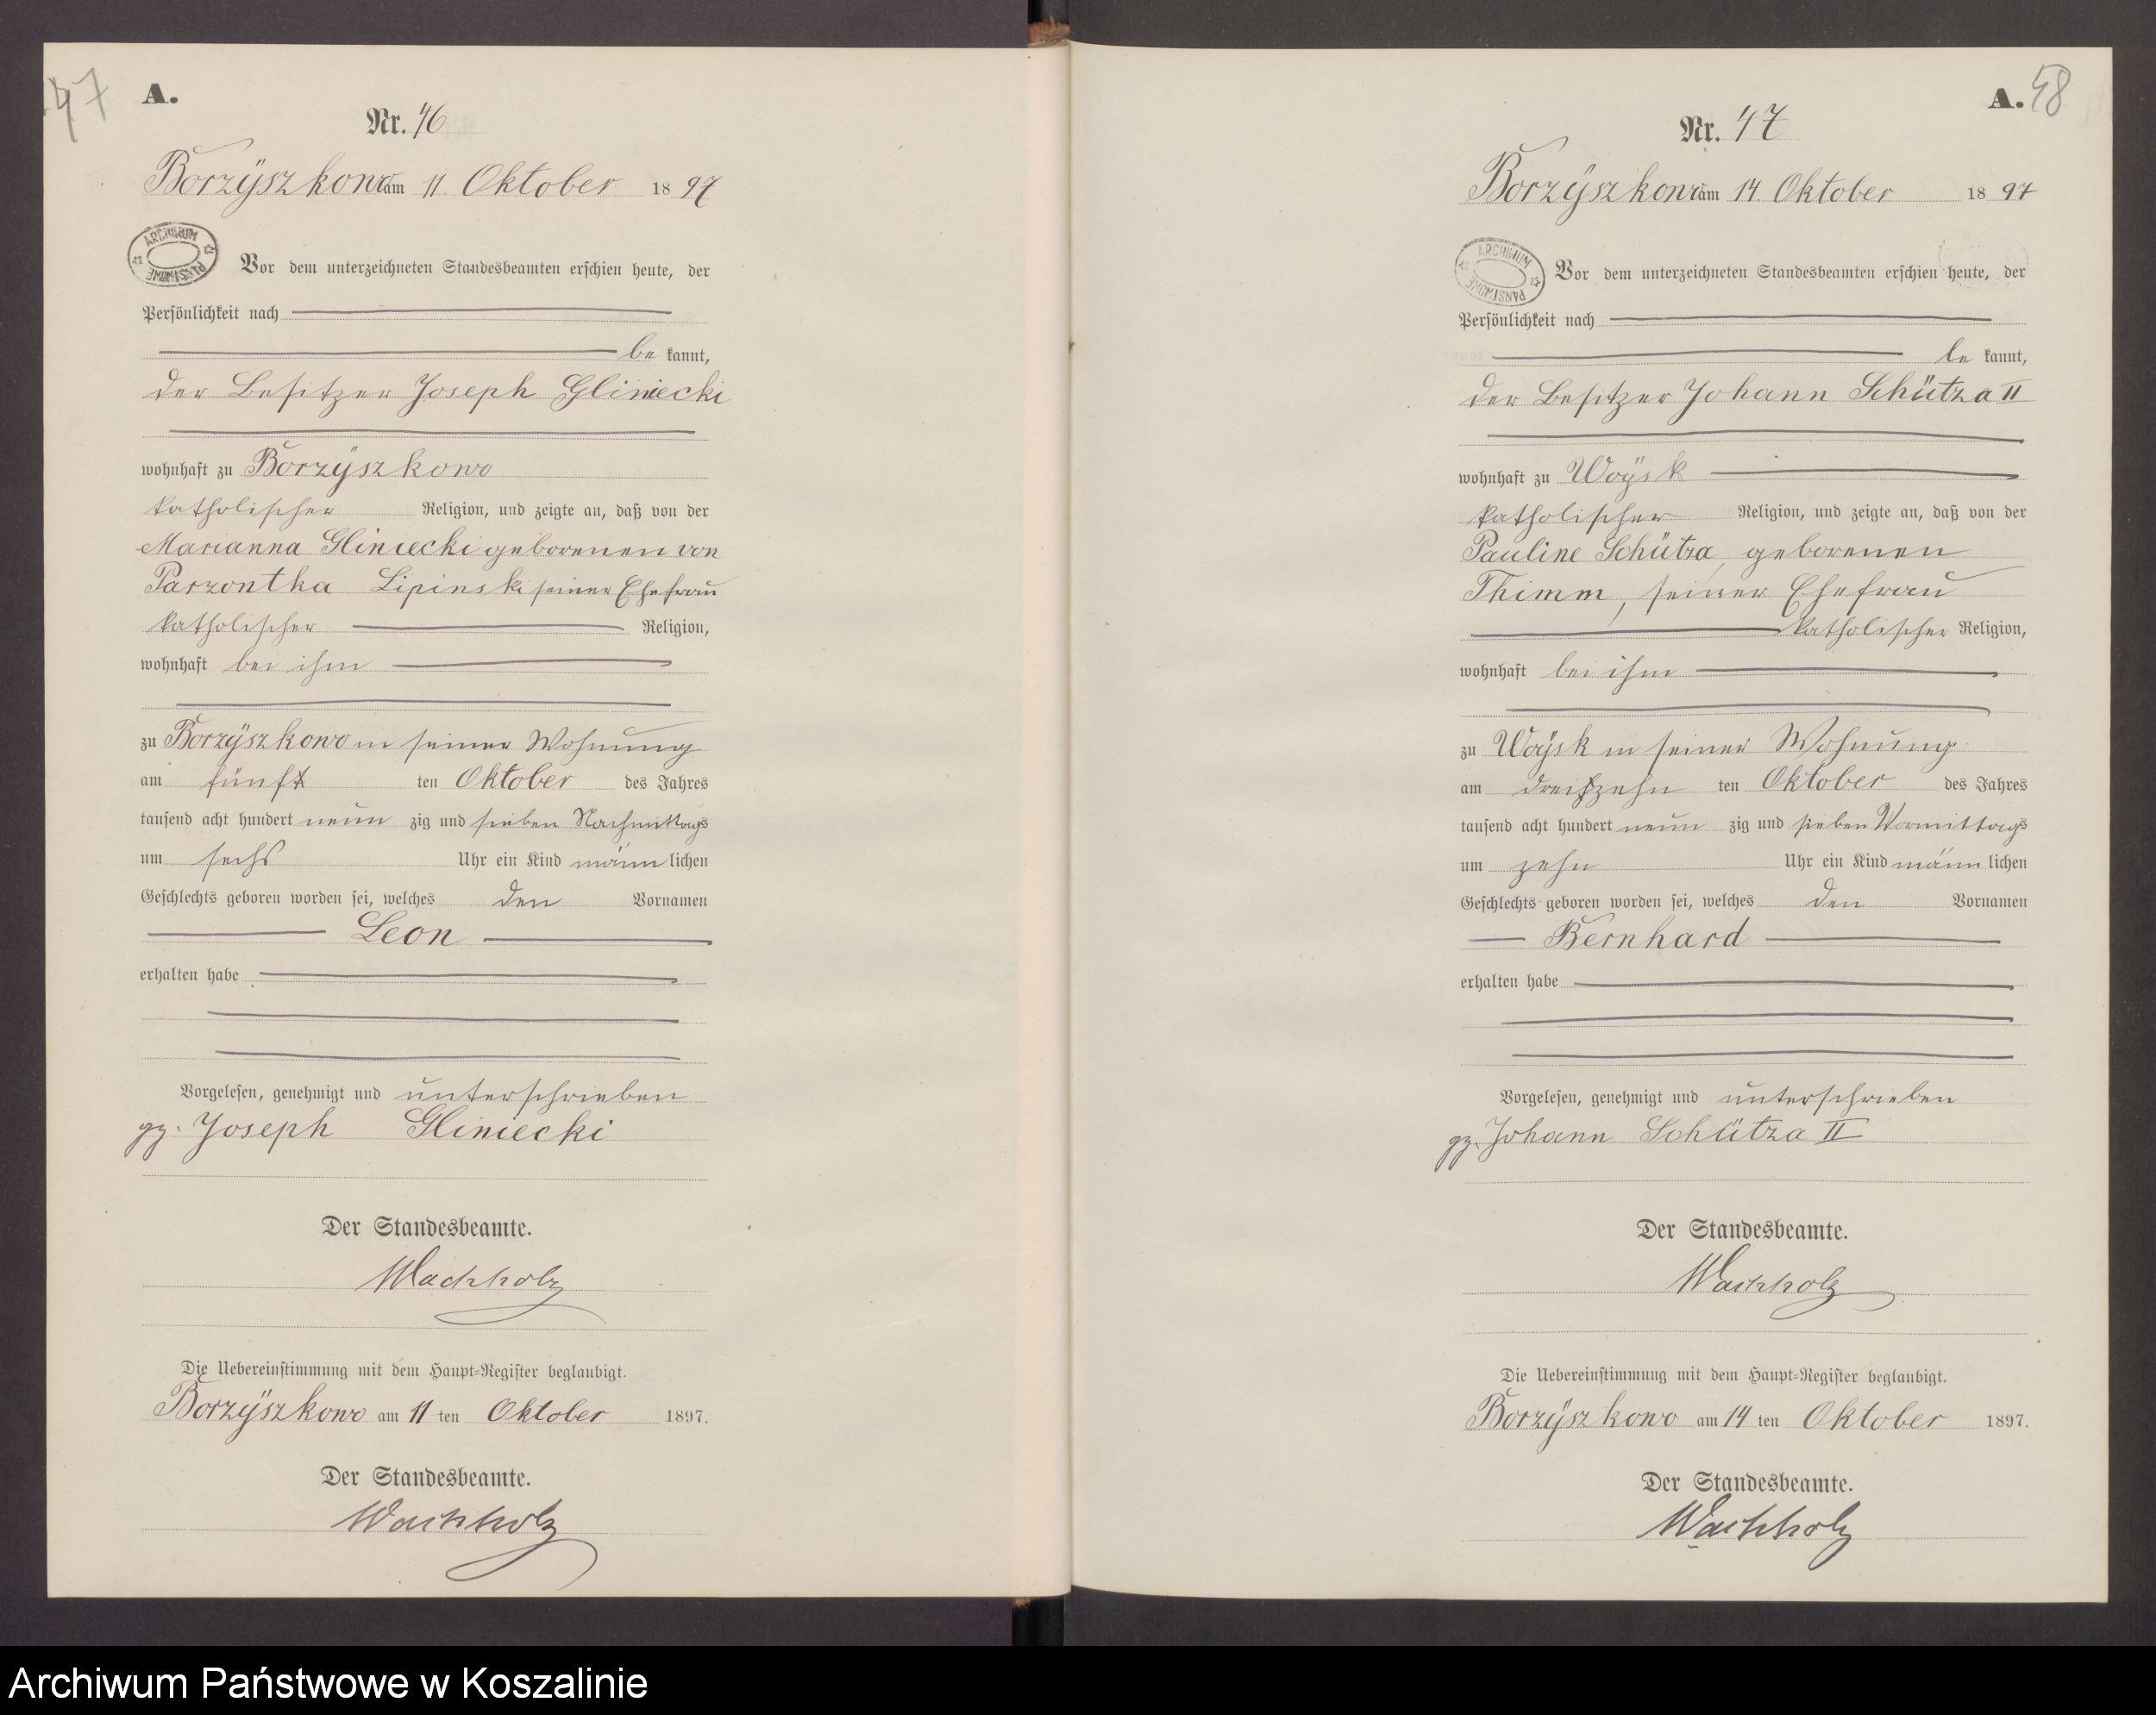 47
A.
Nr. 46
Borzÿszkowo am 11. Oktober 1897
ARCHIWUM PAŃSTWOWE
Vor dem unterzeichneten Standesbeamten erschien heute, der
Persönlichkeit nach
be kannt,
der Besitzer Joseph Gliniecki
wohnhaft zu Borzÿszkowo
katholischer Religion, und zeigte an, daß von der
Marianna Gliniecki geborenen von
Parzontka Lipinski seiner Ehefrau
katholischer Religion,
wohnhaft bei ihm
zu Borzÿszkowo in seiner Wohnung
am fünften Oktober des Jahres
tausend acht hundert neunzig und sieben Nachmittags
um sechs Uhr ein Kind männlichen
Geschlechts geboren worden sei, welches den Vornamen
Leon
erhalten habe
Vorgelesen, genehmigt und unterschrieben
gz. Joseph Gliniecki
Der Standesbeamte.
Wachholz
Die Uebereinstimmung mit dem Haupt-Register beglaubigt.
Borzÿszkowo am 11ten Oktober 1897.
Der Standesbeamte.
Wachholz
A. 48
Nr. 47
Borzÿszkowo am 14. Oktober 1897
ARCHIWUM PAŃSTWOWE
Vor dem unterzeichneten Standesbeamten erschien heute, der
Persönlichkeit nach
be kannt,
der Besitzer Johann Schütza II
wohnhaft zu Woÿsk
katholischer Religion, und zeigte an, daß von der
Pauline Schütza, geborenen
Thimm, seiner Ehefrau
katholischer Religion,
wohnhaft bei ihm
zu Woÿsk in seiner Wohnung
am dreizehnten Oktober des Jahres
tausend acht hundert neunzig und sieben Vormittags
um zehn Uhr ein Kind männlichen
Geschlechts geboren worden sei, welches den Vornamen
Bernhard
erhalten habe
Vorgelesen, genehmigt und unterschrieben
gz. Johann Schütza II
Der Standesbeamte.
Wachholz
Die Uebereinstimmung mit dem Haupt-Register beglaubigt.
Borzÿszkowo am 14ten Oktober 1897.
Der Standesbeamte.
Wachholz
Archiwum Państwowe w Koszalinie